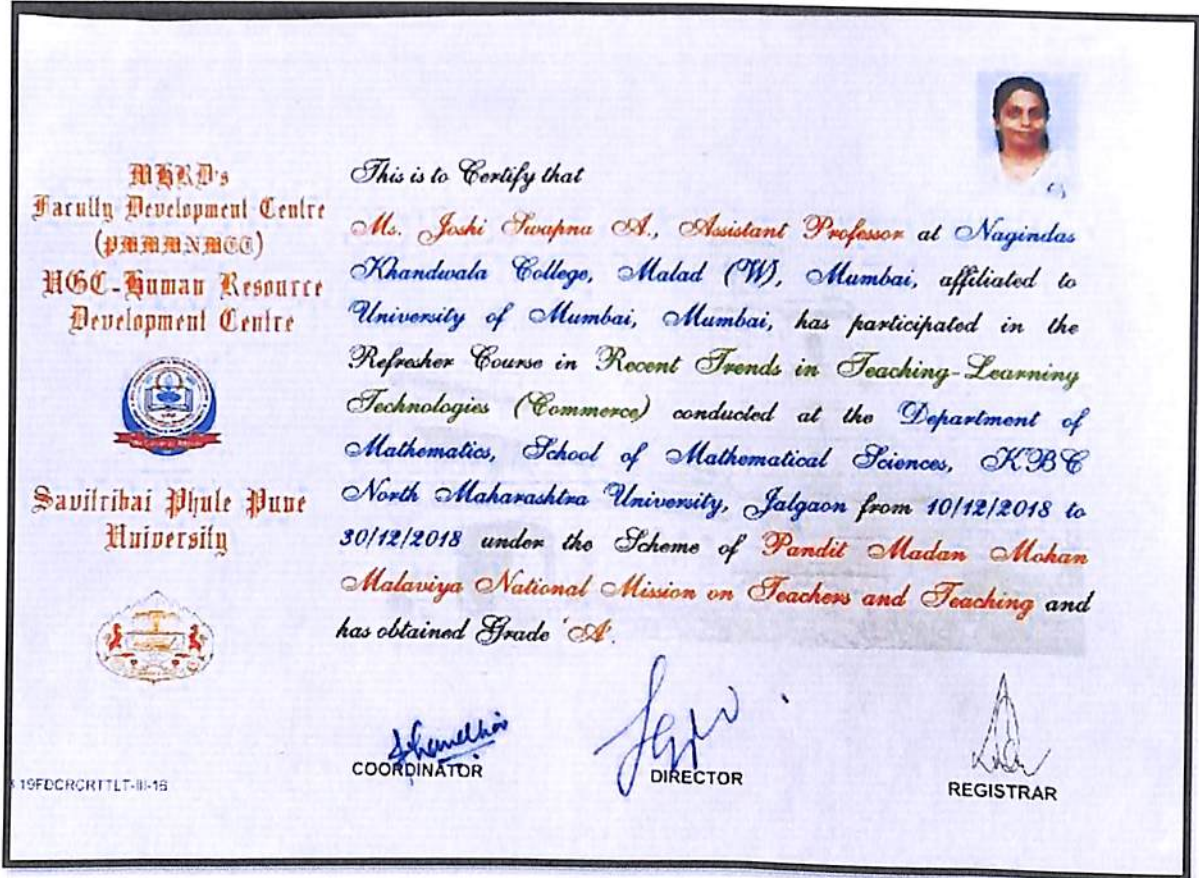 MHRD's
Faculty Development Centre
(PMMMNMTT)
UGC-Human Resource
Development Centre
Savitribai Phule Pune
University
This is to Certify that
Ms. Joshi Swapna A., Assistant Professor at Nagindas
Khandwala College, Malad (W), Mumbai, affiliated to
University of Mumbai, Mumbai, has participated in the
Refresher Course in Recent Trends in Teaching-Learning
Technologies (Commerce) conducted at the Department of
Mathematics, School of Mathematical Sciences, KBC
North Maharashtra University, Jalgaon from 10/12/2018 to
30/12/2018 under the Scheme of Pandit Madan Mohan
Malaviya National Mission on Teachers and Teaching and
has obtained Grade 'A'.
COORDINATOR
DIRECTOR
REGISTRAR